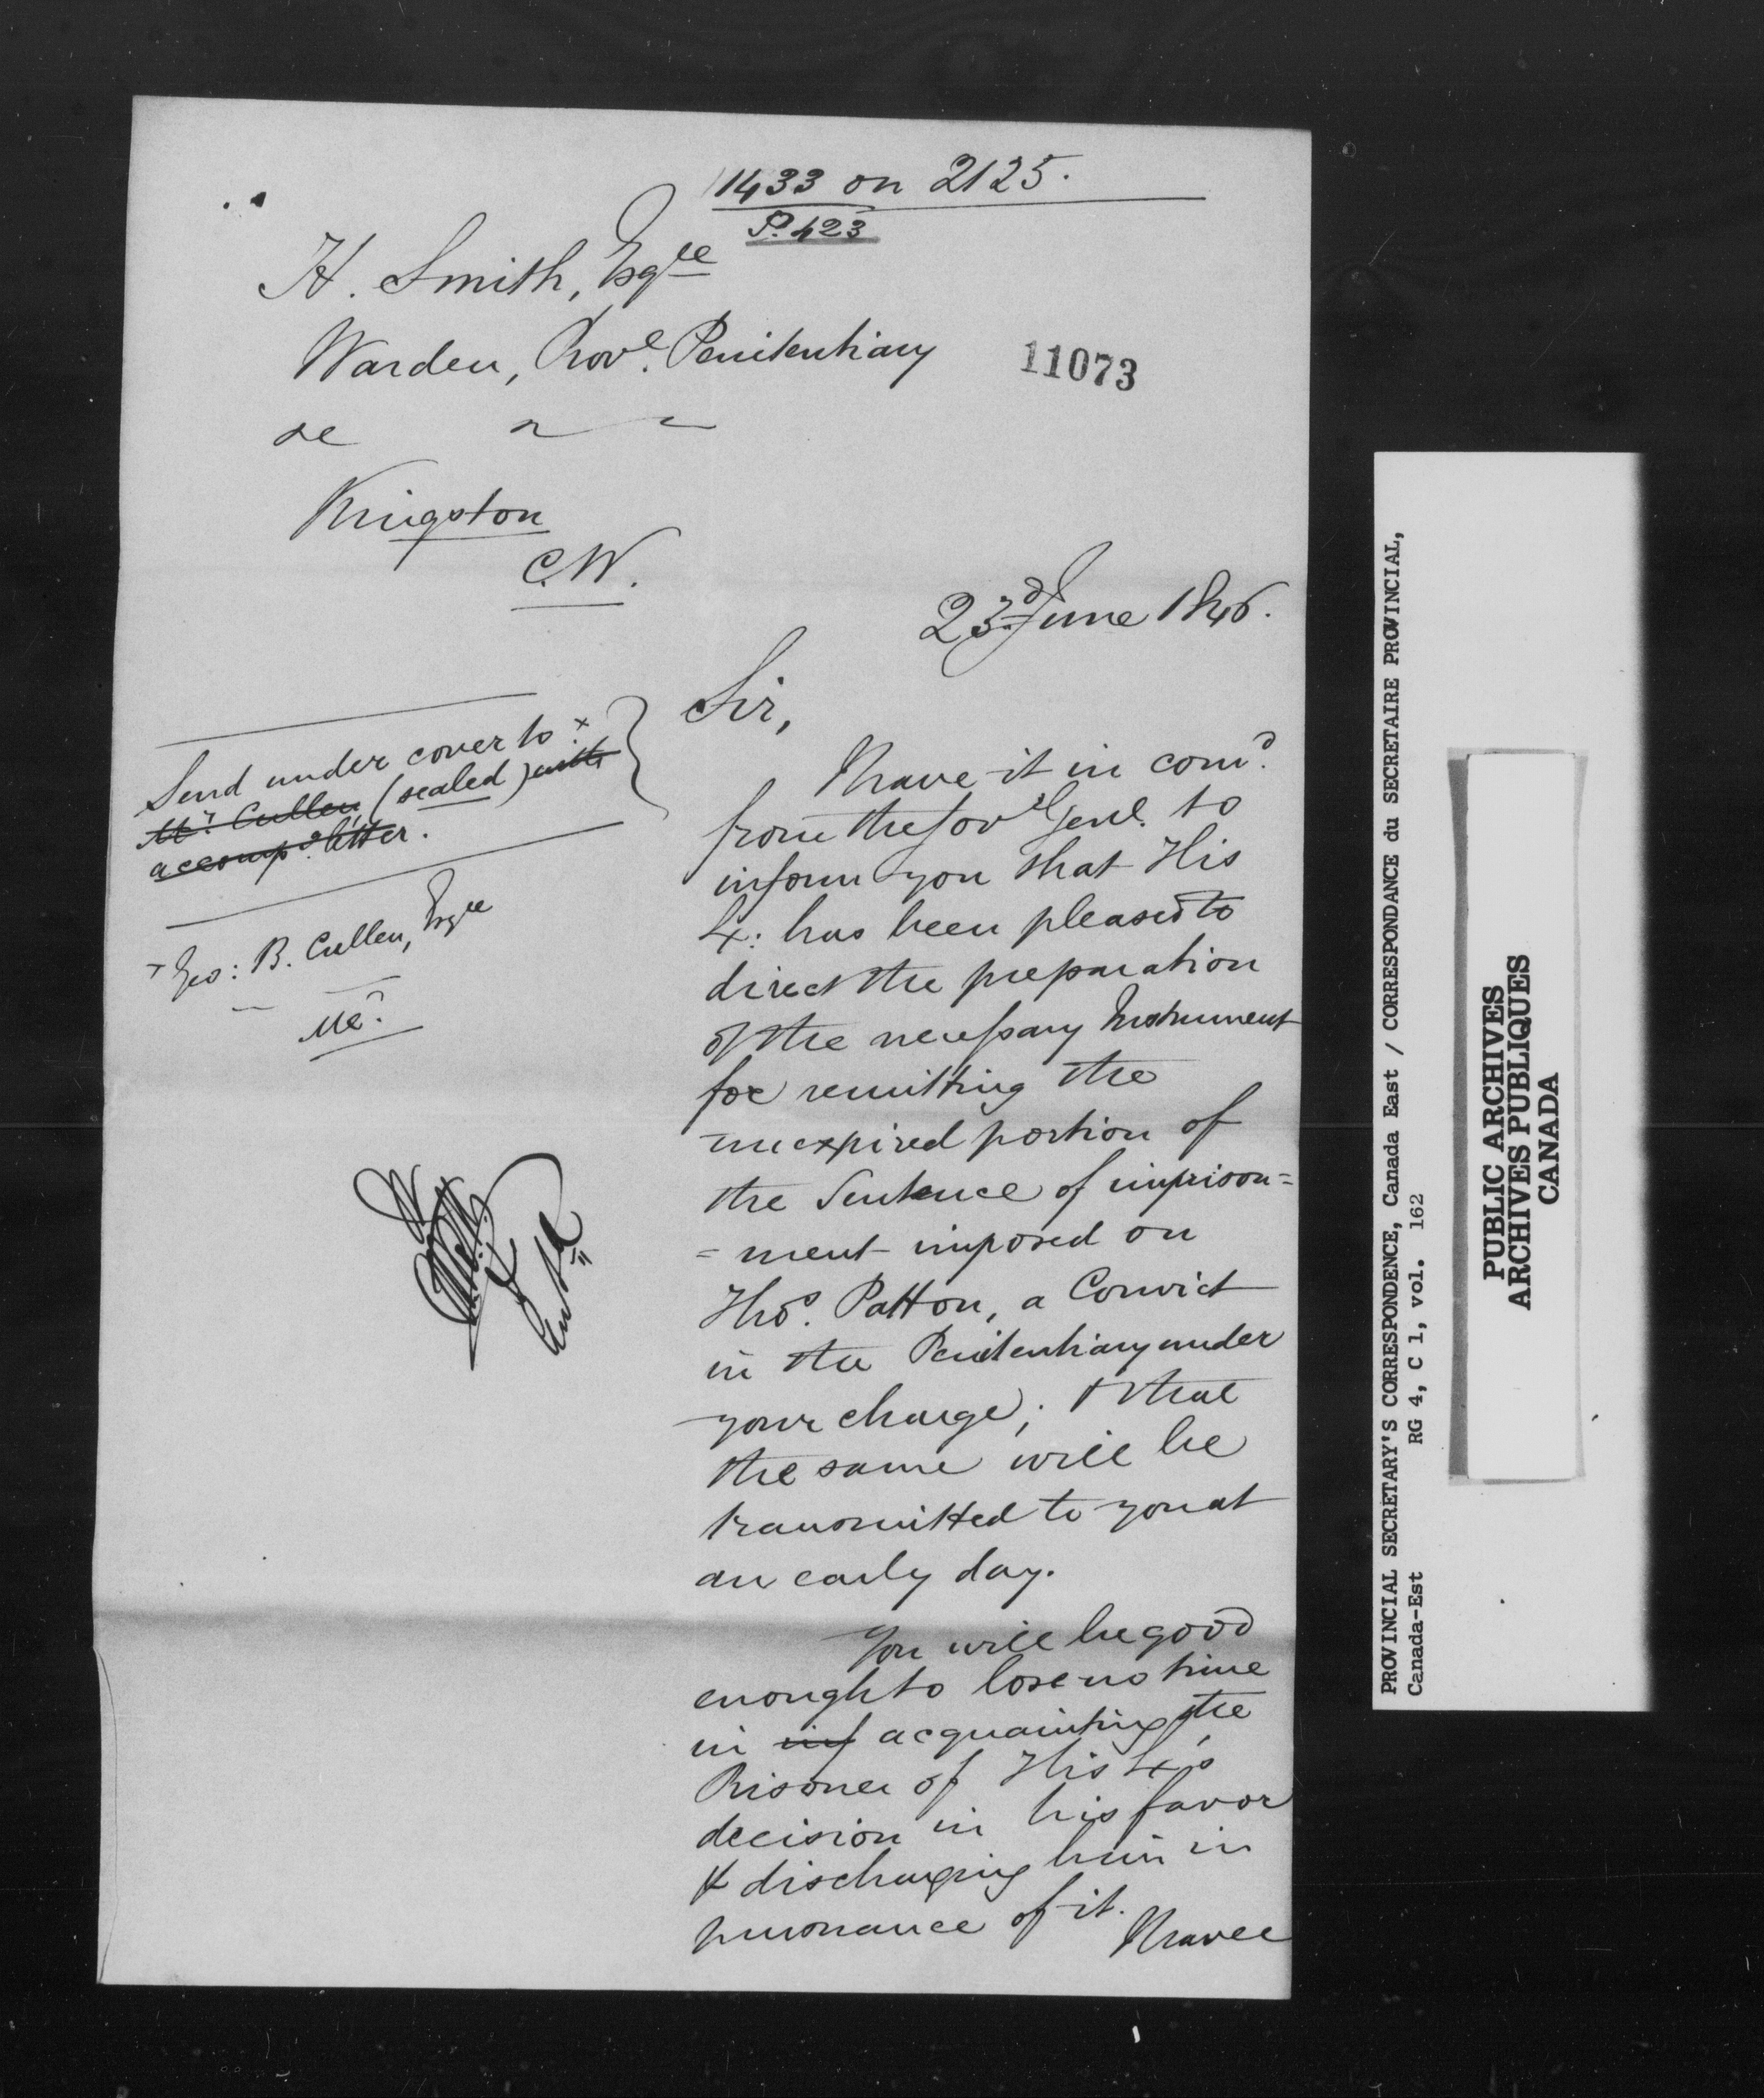 1433 on 2125.
P. 423
H. Smith, Esqre
Warden, Provl. Penitentiary
&c
11073
Kingston
C.W.
23d June 1846.
Send under cover to x
Mr. Cullen, (sealed) with
accompg. letter.
x Geo: B. Cullen, Esqre
Sir,
I have it in comd.
from the Govr Genl. to
inform you that His
Ex: has been pleased to
direct the preparation
of the necessary Instrument
for remitting the
unexpired portion of
the Sentence of imprison=
=ment imposed on
Thos. Patton, a Convict
in the Penitentiary under
your charge; & that
the same will be
transmitted to you at
an early day.
You will be good
enough to lose no time
in inf acquainting the
Prisoner of His Ex's
decision in his favor
& discharging him in
pursuance of it.
I have
Entd
PROVINCIAL SECRETARY'S CORRESPONDENCE, Canada East / CORRESPONDANCE du SECRETAIRE PROVINCIAL,
Canada-Est RG 4, C 1, vol. 162
PUBLIC ARCHIVES
ARCHIVES PUBLIQUES
CANADA